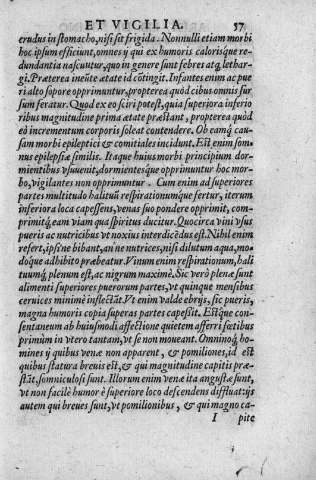 ET VIGILIA. 57
crudus in stomacho, nisi sit frigida. Nonnulli etiam morbi
hoc ipsum efficiunt, omnes ÿ qui ex humoris calorisque re-
dundantia nascuntur, quo in genere sunt febres atq; lethar-
gi. Præterea ineũte ætate id cõtingit. Infantes enim ac pue
ri alto sopore opprimuntur, propterea quòd cibus omnis sur
sum feratur. Quod ex eo sciri potest, quia superiora inferio
ribus magnitudine prima ætate præstant, propterea quòd
eò incrementum corporis soleat contendere. Ob eamq́; cau-
sam morbi epileptici & comitiales incidunt. Est enim som-
nus epilepsiæ similis. Itaque huius morbi principium dor-
mientibus vsuuenit, dormientesque opprimuntur hoc mor-
bo, vigilantes non opprimuntur. Cum enim ad superiores
partes multitudo halituũ respirationumque fertur, iterum
inferiora loca capessens, venas suo pondere opprimit, com-
primitq́; eam viam qua spiritus ducitur. Quocirca vini vsus
pueris ac nutricibus vt noxius interdicẽdus est. Nihil enim
refert, ipsi ne bibant, an ne nutrices, nisi dilutum aqua, mo-
doq́ue adhibito præbeatur. Vinum enim respirationum, hali
tuumq́; plenum est, ac nigrum maximè. Sic verò plenæ sunt
alimenti superiores puerorum partes, vt quinque mensibus
ceruices minimè inflectãt. Vt enim valde ebrijs, sic pueris,
magna humoris copia superas partes capessit. Estque con-
sentaneum ab huiusmodi affectione quietem afferri fœtibus
primùm in vtero tantam, vt se non moueant. Omninoq́; ho-
mines ÿ quibus venæ non apparent, & pomiliones, id est
quibus statura breuis est, & qui magnitudine capitis præ-
stãt, somniculosi sunt. Illorum enim venæ ita angustæ sunt,
vt non facilè humor è superiore loco descendens diffluat: ijs
autem qui breues sunt, vt pomilionibus, & qui magno ca-
I pite